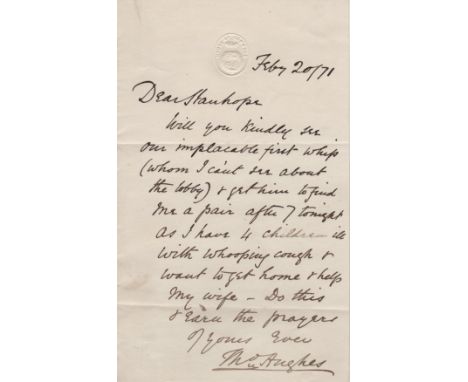 Feby 20/71
Dear Stanhope
Will you kindly see
our implacable first whip
(whom I can't see about
the lobby) & get him to find
me a pair after 7 tonight
as I have 4 children ill
with whooping cough &
want to get home & help
my wife – Do this
& earn the prayers
of yours Ever
Thos Hughes